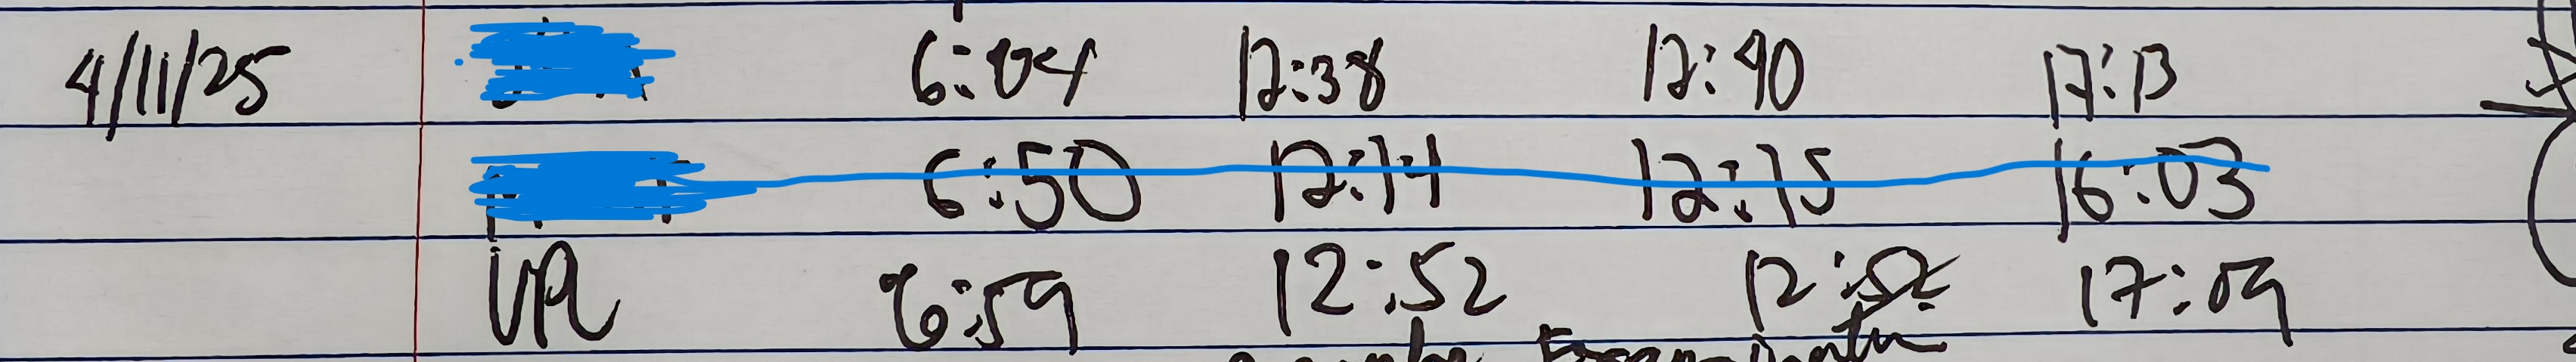 4/11/25 6:04 12:38 12:40 17:13
6:50 12:14 12:15 16:03
6:59 12:52 12:52 17:09